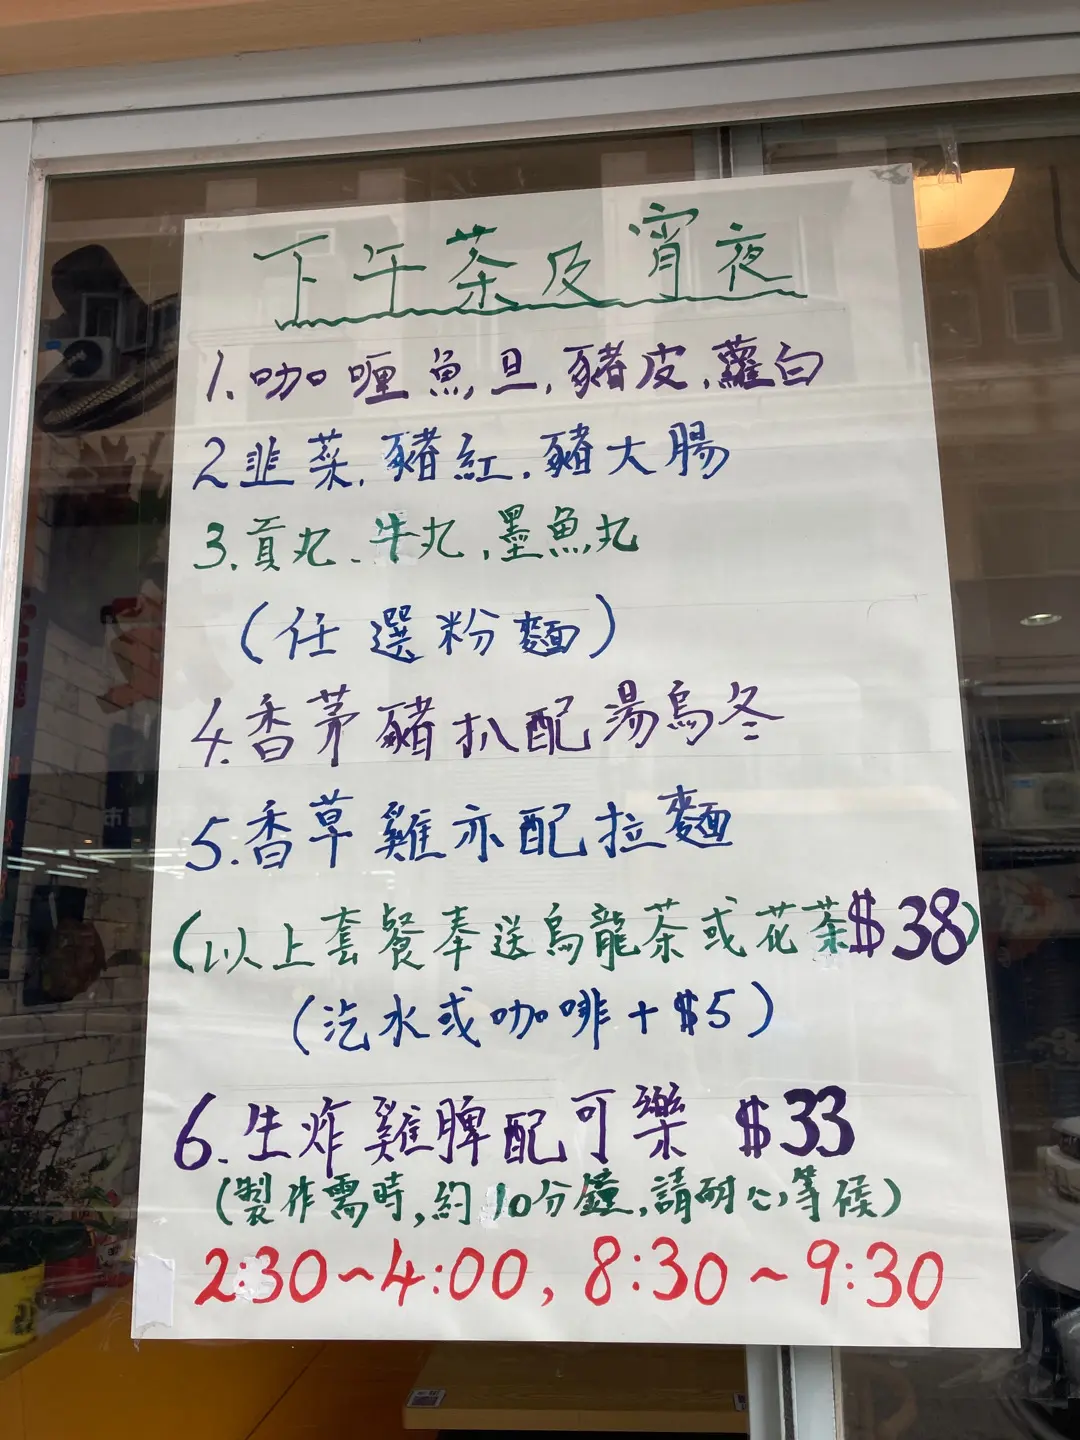 下午茶及宵夜
1.咖喱魚旦.豬皮.蘿白
2韭菜.豬紅.豬大腸
3.貢丸.牛丸.墨魚丸
(任選粉麵)
4.香茅豬扒配湯烏冬
5.香草雞亦配拉麵
(以上套餐奉送烏龍茶或花茶$38)
(汽水或咖啡+$5)
6.生炸雞脾配可樂 $33
(製作需時,約10分鐘,請耐心等候)
2:30~4:00, 8:30~9:30